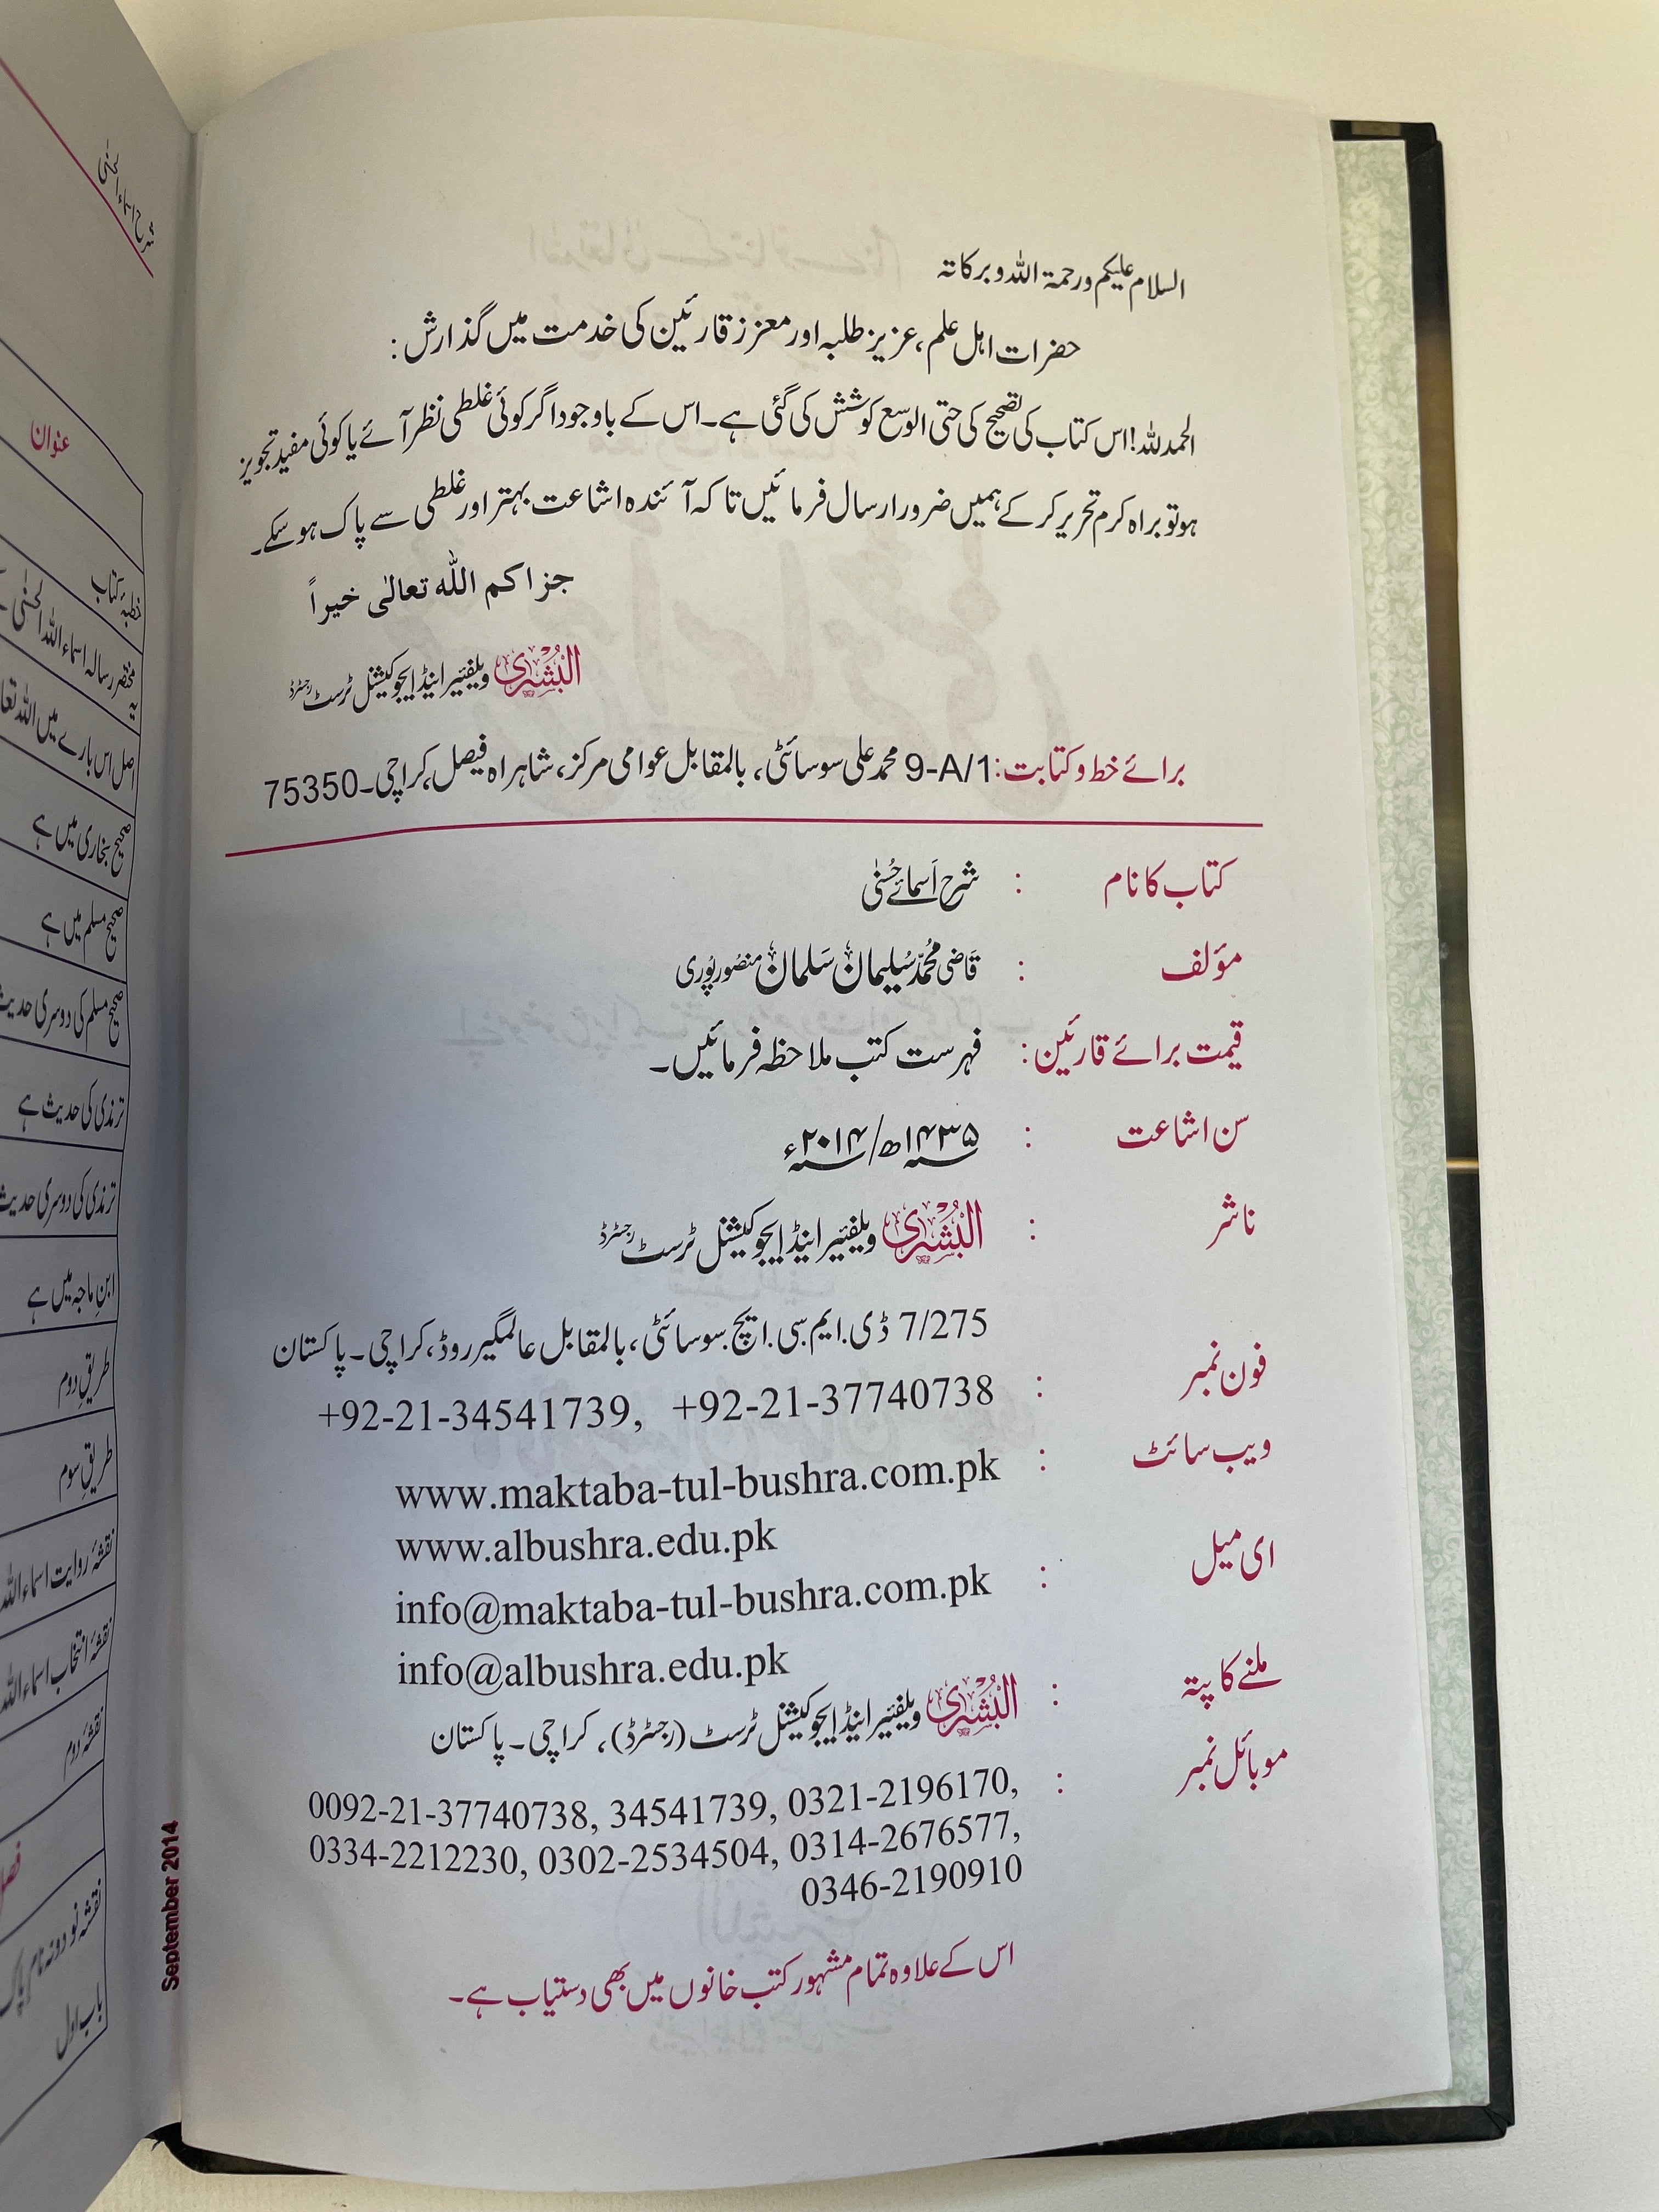 السلام علیکم ورحمۃ اللہ وبرکاتہ
حضرات اہل علم، عزیز طلبہ اور معزز قارئین کی خدمت میں گذارش:
الحمدللہ! اس کتاب کی تصحیح کی حتی الوسع کوشش کی گئی ہے۔ اس کے باوجود اگر کوئی غلطی نظر آئے یا کوئی مفید تجویز
ہو تو براہ کرم تحریر کر کے ہمیں ضرور ارسال فرمائیں تاکہ آئندہ اشاعت بہتر اور غلطی سے پاک ہو سکے۔
جزاکم اللہ تعالٰی خیراً
البُشریٰ ویلفئیر اینڈ ایجوکیشنل ٹرسٹ رجسٹرڈ
برائے خط و کتابت: 9-A/1 محمد علی سوسائٹی، بالمقابل عوامی مرکز، شاہراہ فیصل، کراچی۔ 75350
کتاب کا نام : شرح اَسمائے حُسنٰی
مؤلف : قاضی محمّد سُلیمان سَلمان منصُورپُوری
قیمت برائے قارئین: فہرست کتب ملاحظہ فرمائیں۔
سن اشاعت : ۱۴۳۵ھ/۲۰۱۴ء
ناشر : البُشریٰ ویلفئیر اینڈ ایجوکیشنل ٹرسٹ رجسٹرڈ
7/275 ڈی.ایم.سی.ایچ.سوسائٹی، بالمقابل عالمگیر روڈ، کراچی۔ پاکستان
فون نمبر : +92-21-34541739, +92-21-37740738
ویب سائٹ : www.maktaba-tul-bushra.com.pk
www.albushra.edu.pk
ای میل : info@maktaba-tul-bushra.com.pk
info@albushra.edu.pk
ملنے کا پتہ : البُشریٰ ویلفئیر اینڈ ایجوکیشنل ٹرسٹ (رجسٹرڈ)، کراچی۔ پاکستان
موبائل نمبر : 0092-21-37740738, 34541739, 0321-2196170,
0334-2212230, 0302-2534504, 0314-2676577,
0346-2190910
اس کے علاوہ تمام مشہور کتب خانوں میں بھی دستیاب ہے۔
September 2014
شرح اسماء الحسنٰی
عنوان
خطبۂ کتاب
مختصر رسالہ اسماء اللہ الحسنٰی
اصل اس بارے میں اللہ
صحیح بخاری میں ہے
صحیح مسلم میں ہے
صحیح مسلم کی دوسری حدیث
ترمذی کی حدیث ہے
ترمذی کی دوسری حدیث
ابنِ ماجہ میں ہے
طریقِ دوم
طریقِ سوم
نقشہ روایت اسماء اللہ
نقشہ انتخاب اسماء اللہ
نقشہ دوم
نقشہ نو دونہ نام پاک
باب اول